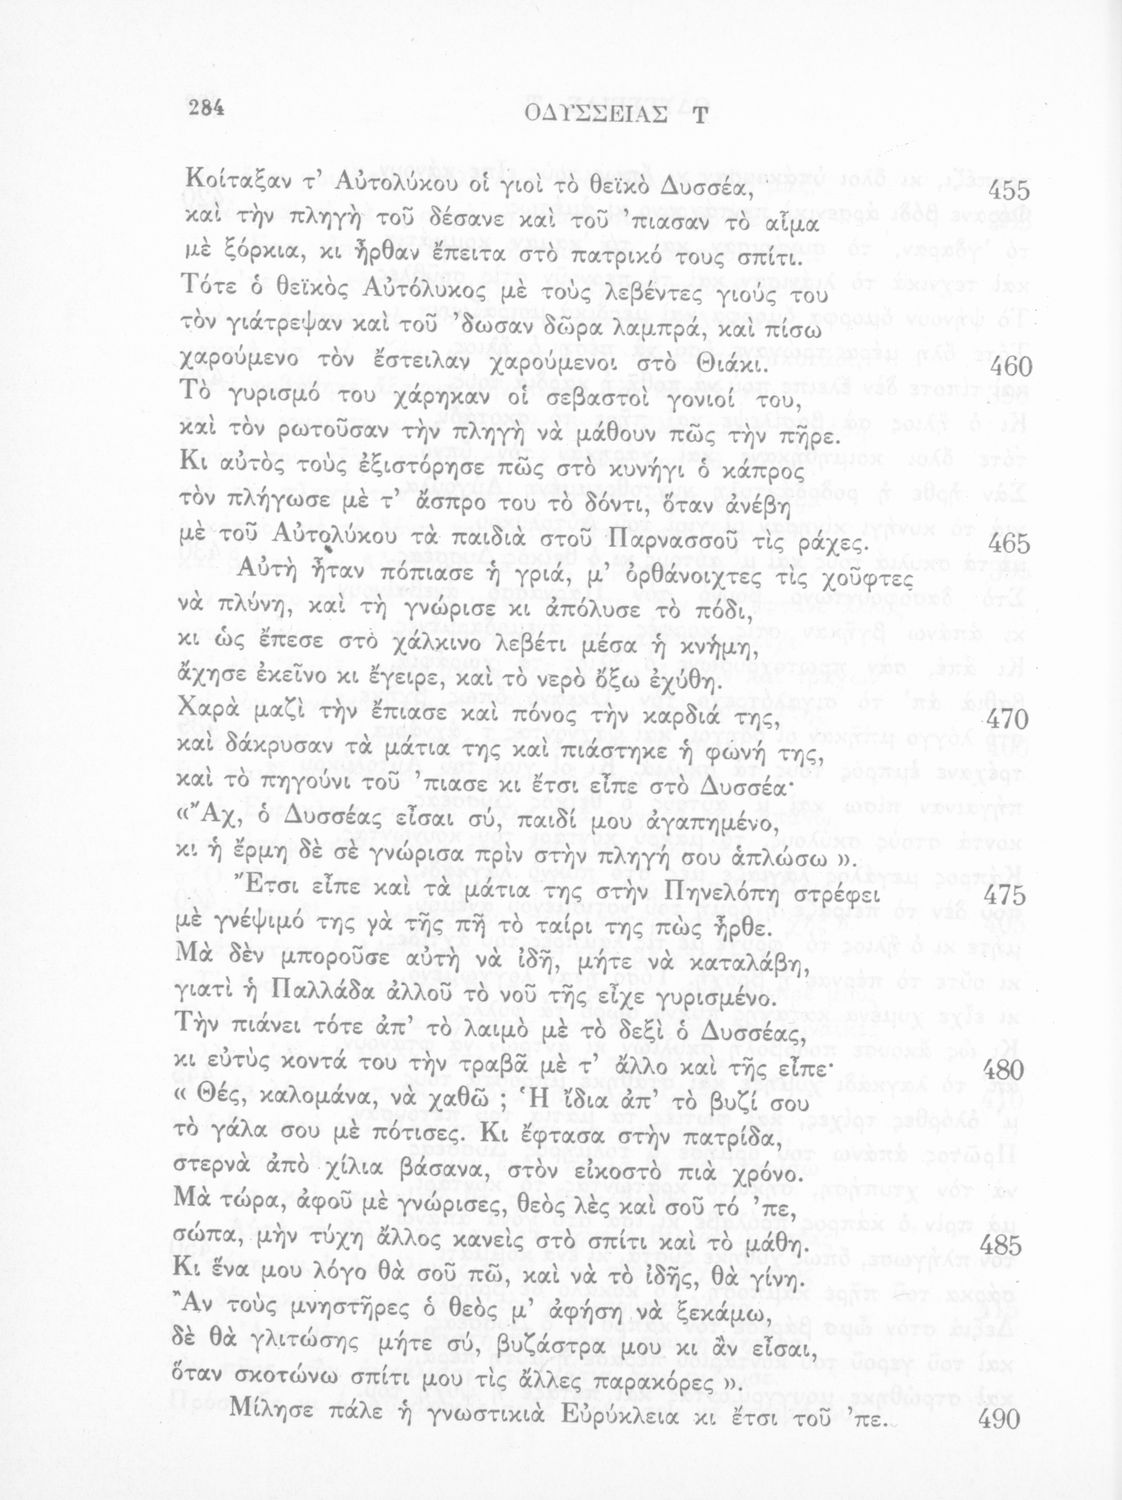 284
ΟΔΥΣΣΕΙΑΣ Τ
Κοίταξαν τ’ Αὐτολύκου οἱ γιοὶ τὸ θεϊκὸ Δυσσέα, 455
καὶ τὴν πληγὴ τοῦ δέσανε καὶ τοῦ ’πιασαν τὸ αἷμα
μὲ ξόρκια, κι ἦρθαν ἔπειτα στὸ πατρικό τους σπίτι.
Τότε ὁ θεϊκὸς Αὐτόλυκος μὲ τοὺς λεβέντες γιούς του
τὸν γιάτρεψαν καὶ τοῦ ’δωσαν δῶρα λαμπρά, καὶ πίσω
χαρούμενο τὸν ἔστειλαν χαρούμενοι στὸ Θιάκι. 460
Τὸ γυρισμό του χάρηκαν οἱ σεβαστοὶ γονιοί του,
καὶ τὸν ρωτοῦσαν τὴν πληγὴ νὰ μάθουν πῶς τὴν πῆρε.
Κι αὐτὸς τοὺς ἐξιστόρησε πὼς στὸ κυνήγι ὁ κάπρος
τὸν πλήγωσε μὲ τ’ ἄσπρο του τὸ δόντι, ὅταν ἀνέβη
μὲ τοῦ Αὐτολύκου τὰ παιδιὰ στοῦ Παρνασσοῦ τὶς ράχες. 465
Αὐτὴ ἦταν πόπιασε ἡ γριά, μ’ ὀρθάνοιχτες τὶς χοῦφτες
νὰ πλύνη, καὶ τὴ γνώρισε κι ἀπόλυσε τὸ πόδι,
κι ὡς ἔπεσε στὸ χάλκινο λεβέτι μέσα ἡ κνήμη,
ἄχησε ἐκεῖνο κι ἔγειρε, καὶ τὸ νερὸ ὄξω ἐχύθη.
Χαρὰ μαζὶ τὴν ἔπιασε καὶ πόνος τὴν καρδιά της, 470
καὶ δάκρυσαν τὰ μάτια της καὶ πιάστηκε ἡ φωνή της,
καὶ τὸ πηγούνι τοῦ ’πιασε κι ἔτσι εἶπε στὸ Δυσσέα·
«Ἄχ, ὁ Δυσσέας εἶσαι σύ, παιδί μου ἀγαπημένο,
κι ἡ ἔρμη δὲ σὲ γνώρισα πρὶν στὴν πληγή σου ἁπλώσω ».
Ἔτσι εἶπε καὶ τὰ μάτια της στὴν Πηνελόπη στρέφει 475
μὲ γνέψιμό της γὰ τῆς πῆ τὸ ταίρι της πὼς ἦρθε.
Μὰ δὲν μποροῦσε αὐτὴ νὰ ἰδῆ, μήτε νὰ καταλάβη,
γιατὶ ἡ Παλλάδα ἀλλοῦ τὸ νοῦ τῆς εἶχε γυρισμένο.
Τὴν πιάνει τότε ἀπ’ τὸ λαιμὸ μὲ τὸ δεξὶ ὁ Δυσσέας,
κι εὐτὺς κοντά του τὴν τραβᾶ μὲ τ’ ἄλλο καὶ τῆς εἶπε· 480
« Θές, καλομάνα, νὰ χαθῶ ; Ἡ ἴδια ἀπ’ τὸ βυζί σου
τὸ γάλα σου μὲ πότισες. Κι ἔφτασα στὴν πατρίδα,
στερνὰ ἀπὸ χίλια βάσανα, στὸν εἰκοστὸ πιὰ χρόνο.
Μὰ τώρα, ἀφοῦ μὲ γνώρισες, θεὸς λὲς καὶ σοῦ τό ’πε,
σώπα, μὴν τύχη ἄλλος κανεὶς στὸ σπίτι καὶ τὸ μάθη. 485
Κι ἕνα μου λόγο θὰ σοῦ πῶ, καὶ νὰ τὸ ἰδῆς, θὰ γίνη.
Ἂν τοὺς μνηστῆρες ὁ θεὸς μ’ ἀφήση νὰ ξεκάμω,
δὲ θὰ γλιτώσης μήτε σύ, βυζάστρα μου κι ἂν εἶσαι,
ὅταν σκοτώνω σπίτι μου τὶς ἄλλες παρακόρες ».
Μίλησε πάλε ἡ γνωστικιὰ Εὐρύκλεια κι ἔτσι τοῦ ’πε. 490